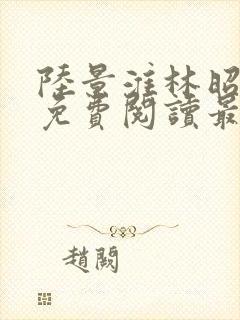 陸景淮林昭
免費閱讀最
趙闕